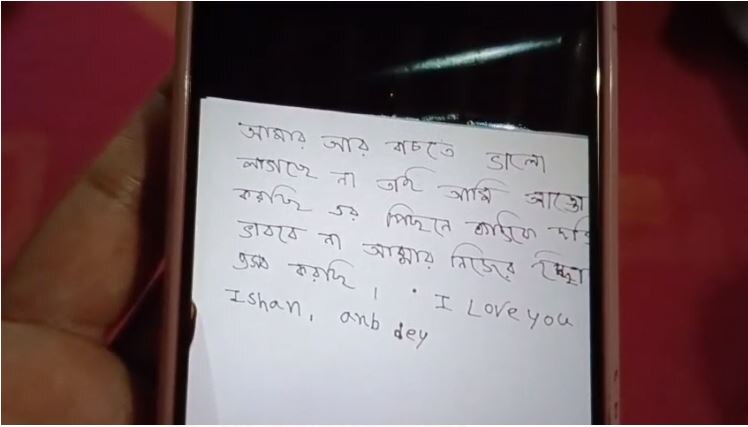 আমার আর বাচতে ভালো
লাগছে না তাই আমি আত্তো
করছি এর পিছনে কাউকে
ভাববে না আমার নিজের ইচ্ছা
এসব করছি । I Love you
Ishan, anb dey